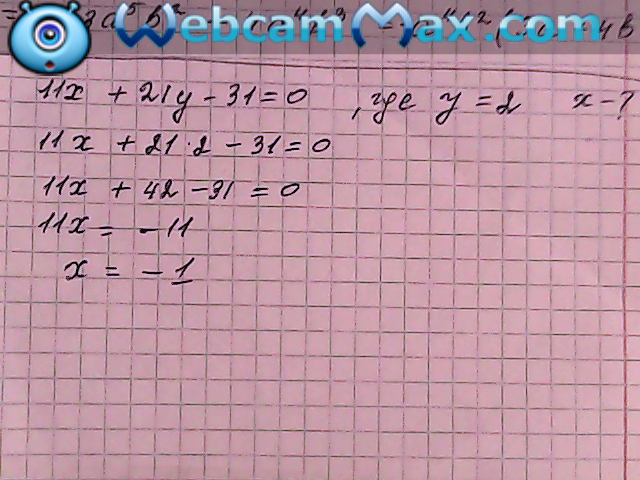 WebcamMax.com
11x + 21y - 31 = 0 , где y = 2 x - ?
11x + 21·2 - 31 = 0
11x + 42 - 31 = 0
11x = - 11
x = - 1